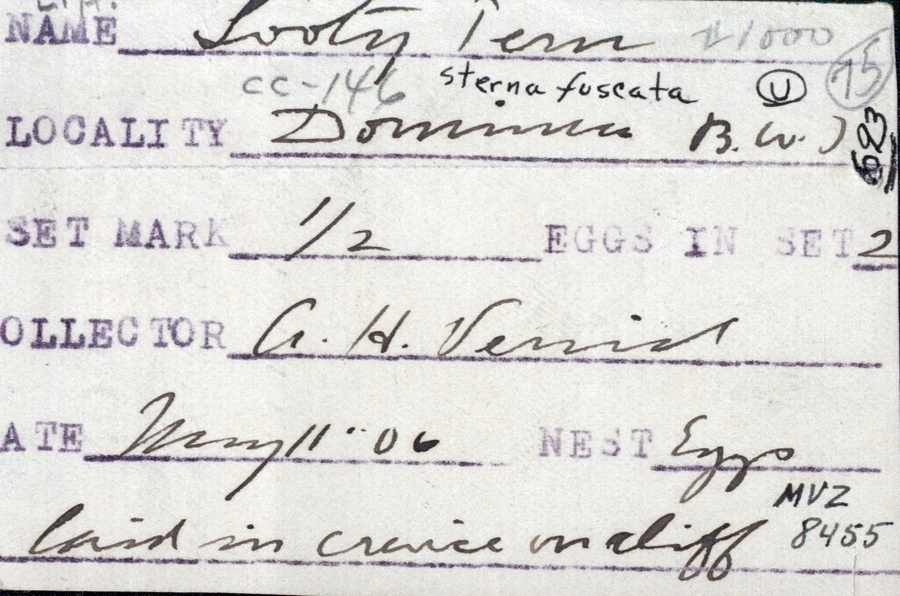 NAME Sooty Tern $1000
cc-146 sterna fuscata U 75
LOCALITY Dominica B.W.I
523
SET MARK 1/2 EGGS IN SET 2
OLLECTOR A. H. Verrill
ATE May 11" 06 NEST Eggs
MVZ
laid in crevice on cliff 8455